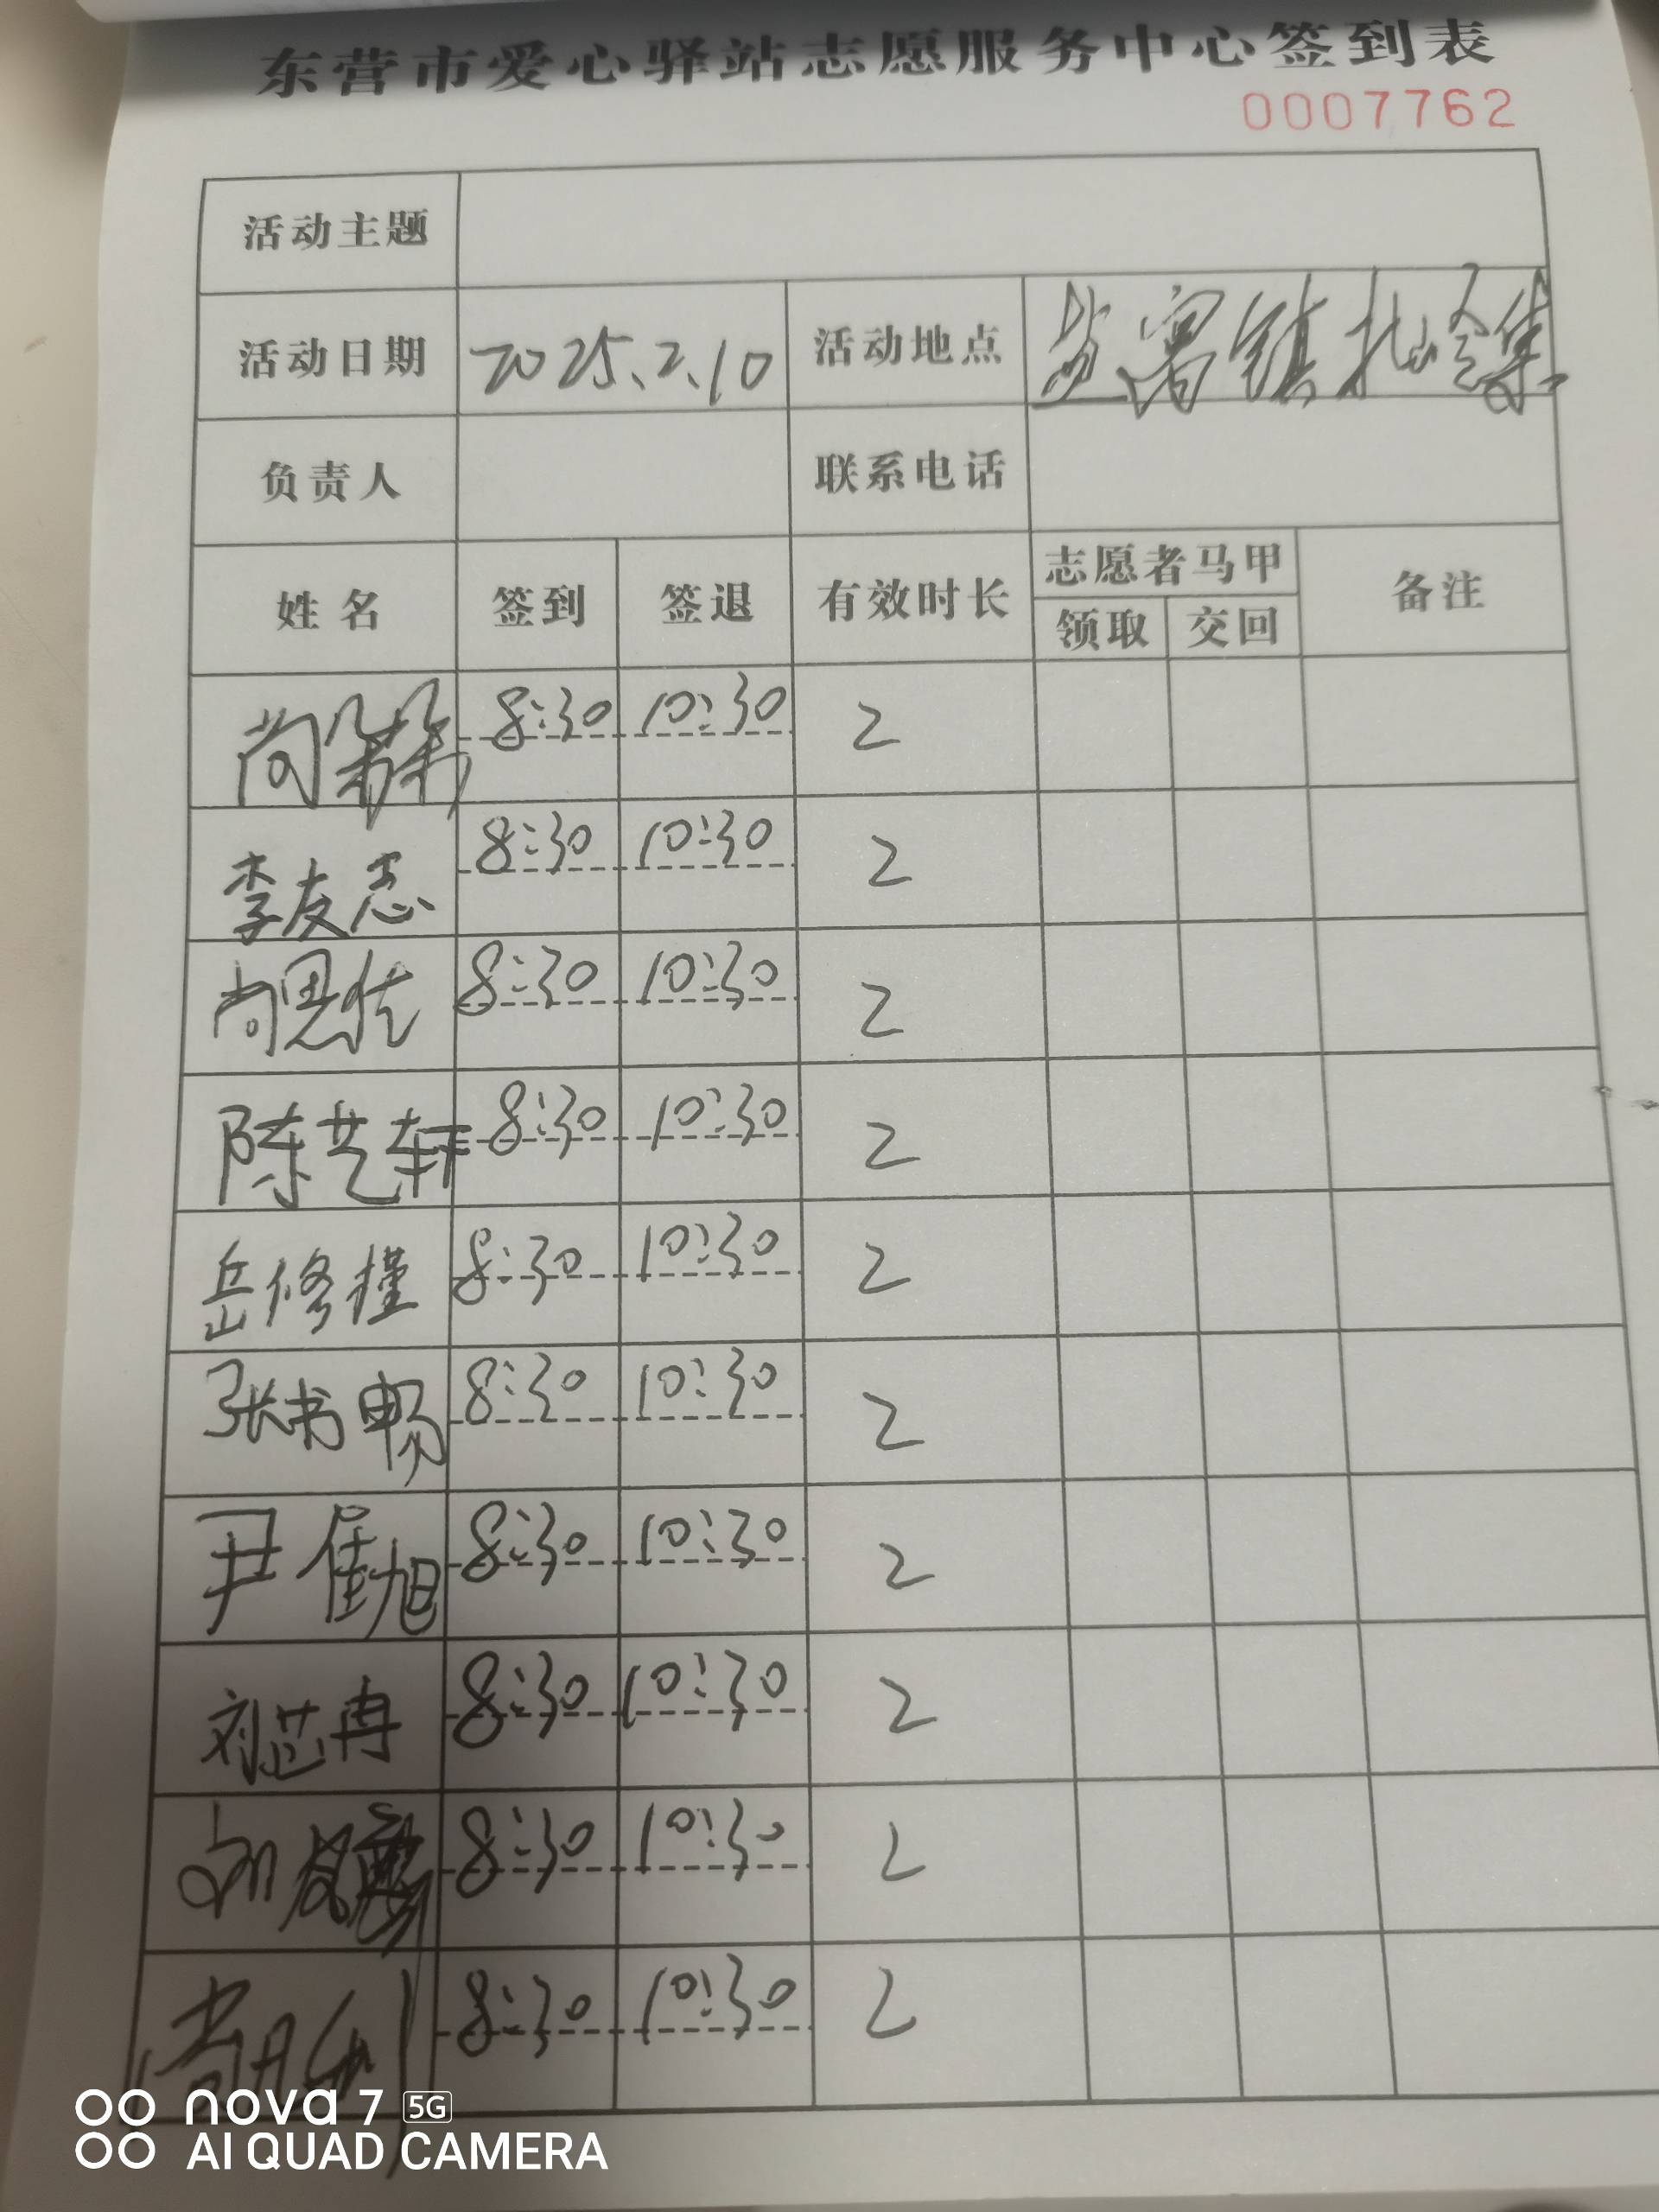 东营市爱心驿站志愿服务中心签到表
0007762
活动主题
活动日期 2025.2.10 活动地点 盐窝镇 集
负责人 联系电话
姓名 签到 签退 有效时长 志愿者马甲 备注
领取 交回
尚 8:30 10:30 2
李友志 8:30 10:30 2
尚思佳 8:30 10:30 2
陈艺轩 8:30 10:30 2
岳修瑾 8:30 10:30 2
张书畅 8:30 10:30 2
尹 旭 8:30 10:30 2
刘芯冉 8:30 10:30 2
8:30 10:30 2
8:30 10:30 2
nova 7 5G
AI QUAD CAMERA